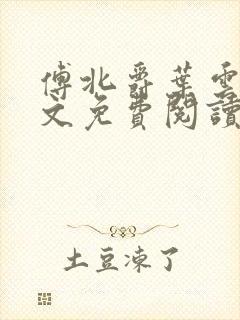 傅北爵葉雲
文免費閱讀
土豆凍了